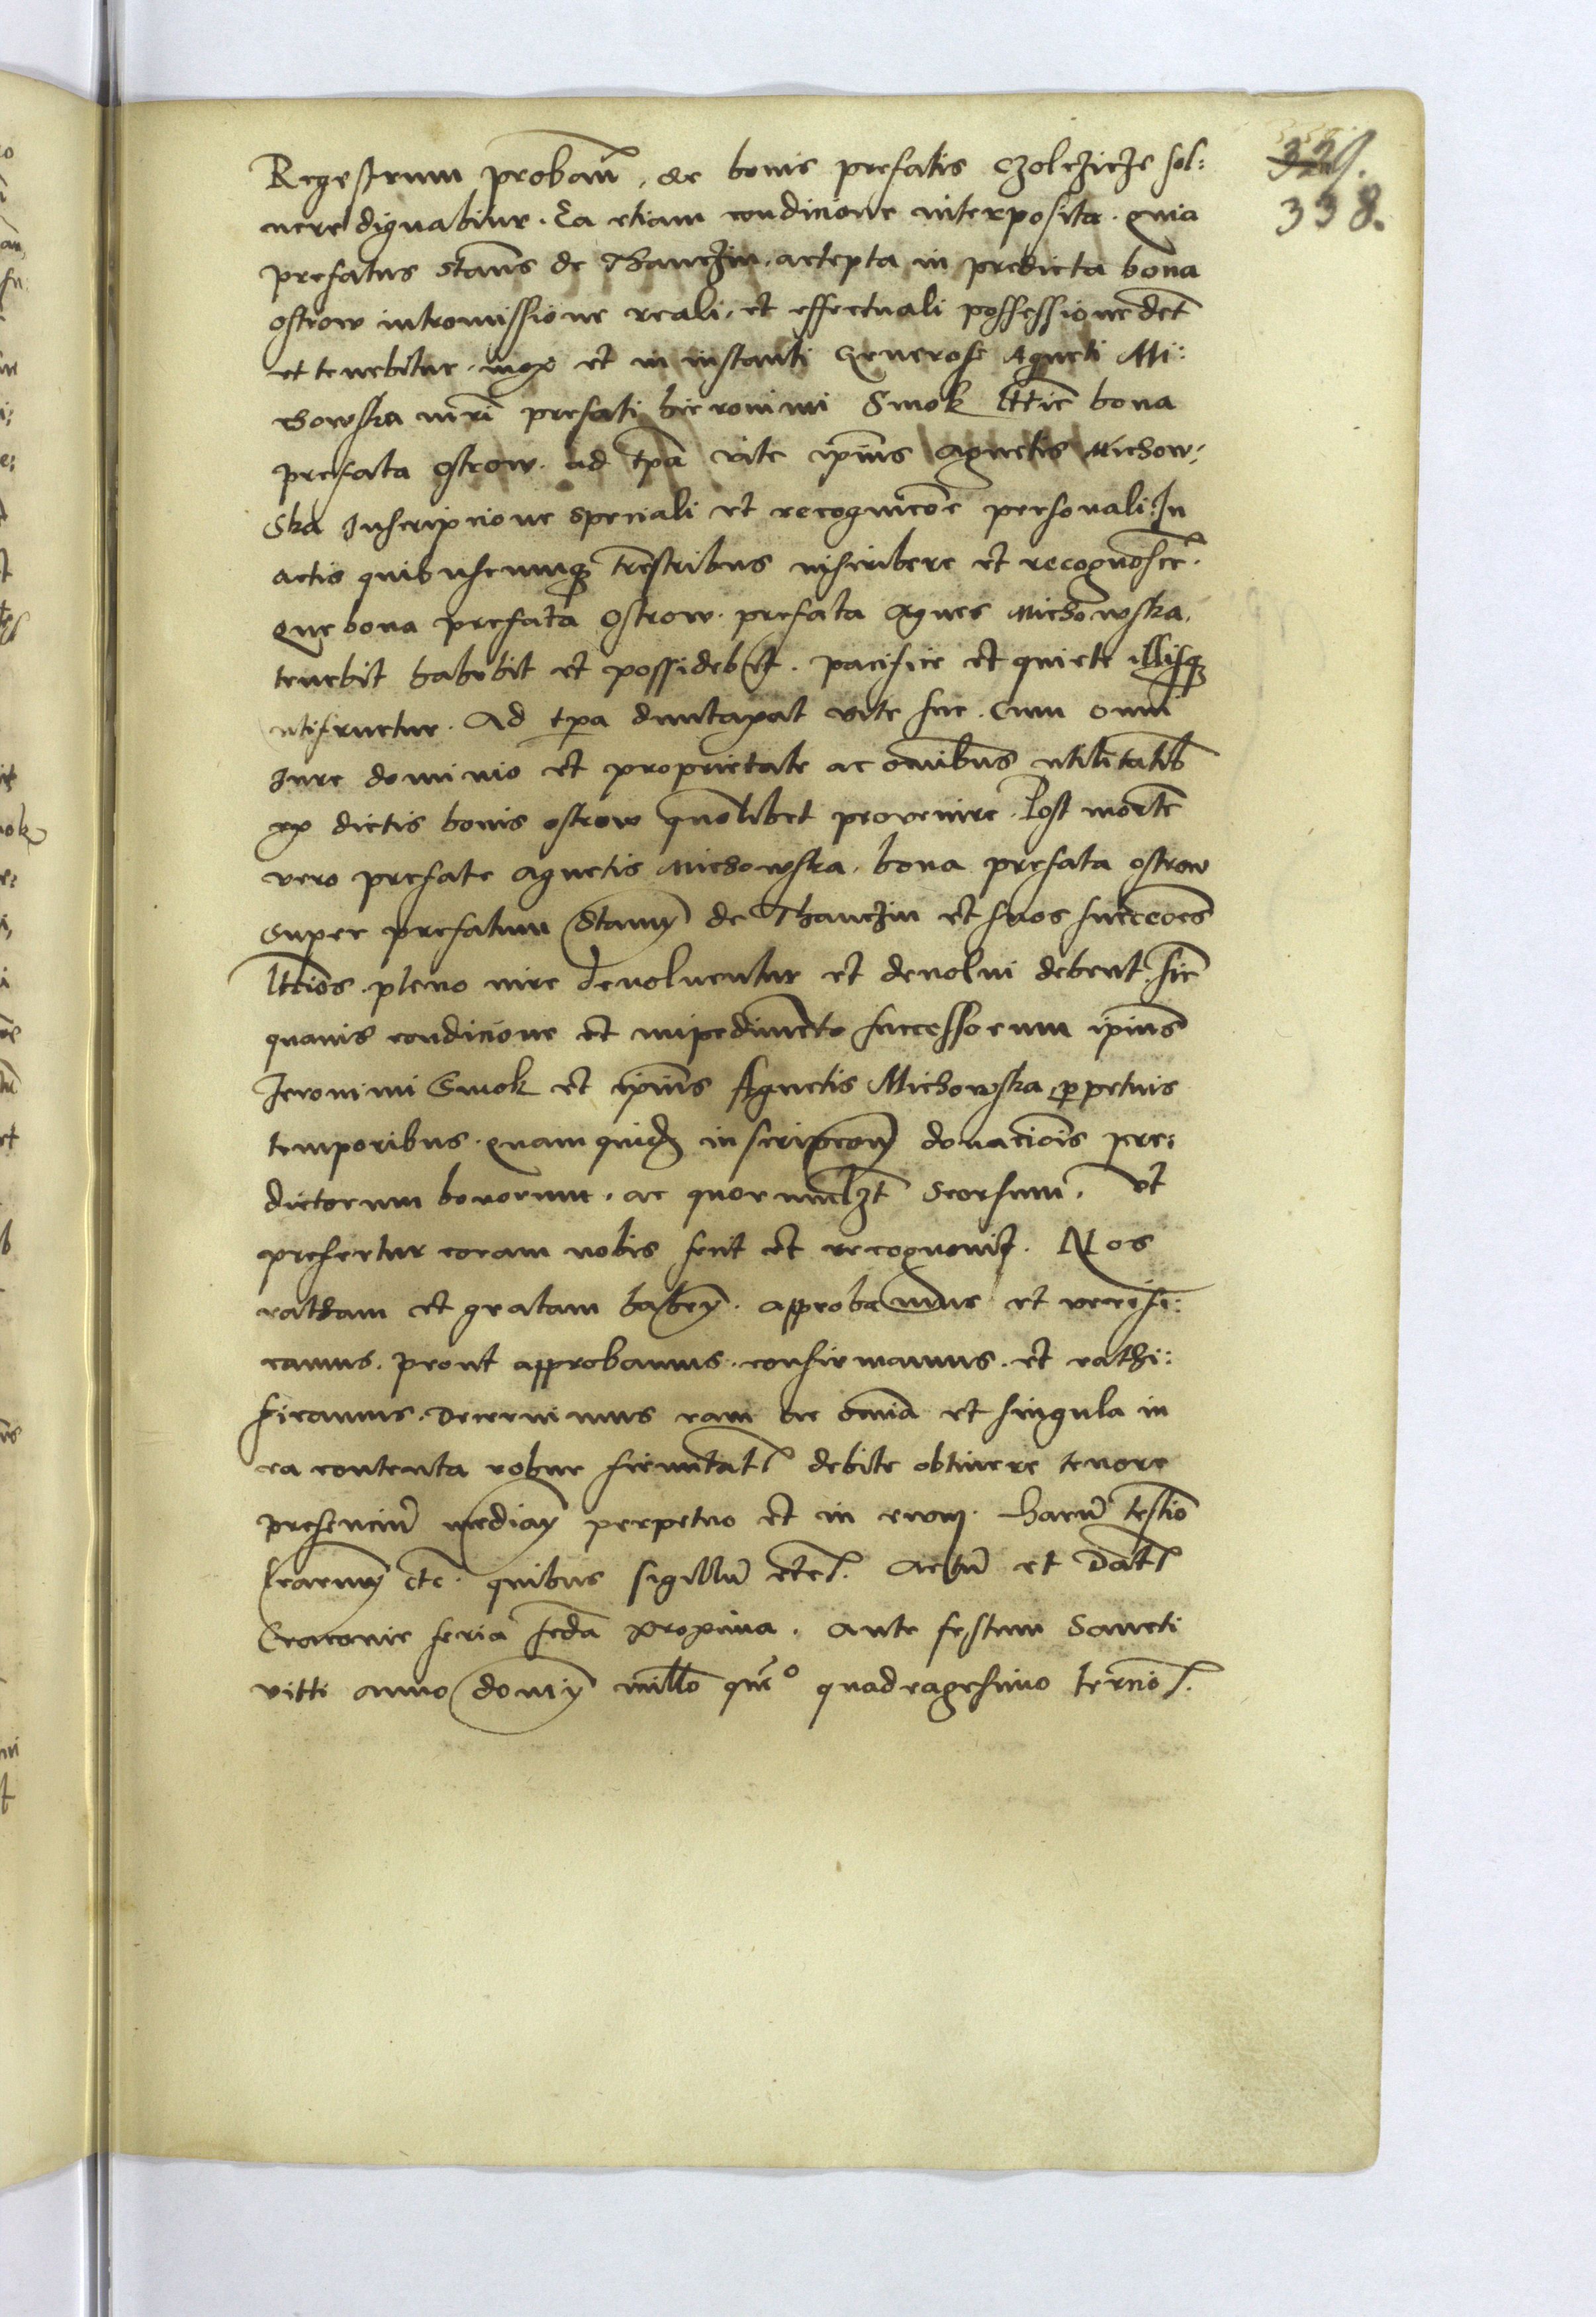 338.
Regestrum probaūt, de bonis prefatis Czolczicze sol:
vere dignabitur. Ea etiam condicione interposita. quia
prefatus Stanīs de Thanczin. accepta in predicta bona
ostrow intromissione reali, et effectuali possessione det
et tenebitur. mox et in instanti Generose Agneti Mi:
chowska prefati hieronimi Smok lttie bona
prefata ostrow. ad tpā vite ipīus Agnetis Michow:
ska Inscripcione speciali et recognicōe personali In
actis quibuscumq̨ trēstribus inscribere et recognoscē.
Que bona prefata ostrow. prefata Agnes Michowska.
tenebit habebit et possidebit. pacifice et quiete illisq̨
utifruetur. Ad tpa duntaxat vite sue. Cum omni
Iure dominio et proprietate ac omībus utilitatib
ex dictis bonis ostrow quōlibet provenire. Post mortē
vero prefate Agnetis Michowska. bona prefata ostrow
super prefatum Stanīy de Thanczin et suos succcōēs
lttīos. pleno iure devolventur et devolui debent. sīe
quavis condicione et impedimēto successorum ipīus
Jeronimi Smok et ipīus Agnetis Michowska ꝑpetuis
temporibus. quam quid̨ inscripcōnȳ donacīonis pre:
dictorum bonorum. ac quorumlzt seorsum. ut
prefertur coram nobis fecit et recognovit. Nos
ratham et gratam habeñ. approbamus et verifi:
camus. prout approbamus. confirmamus. et rathi:
ficamus. decernimus eam ac omīa et singula in
ea contenta robur firmitatis debite obtinere tenore
presenciū mediañ perpetuo et in evuȳ. harū testīo
lrarumȳ etc. quibus sigillū etc. Actū et Dat
Cracovie feria scda proxima. ante festum Sancti
vitti anno domȳ millo qūc° quadragesimo tercīo.